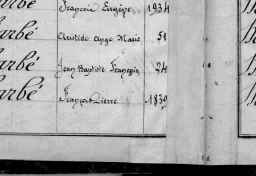 François Eugène 1934
arbé Clotilde Ange Marie 51
arbé Jean Baptiste François 24
arbé François Pierre 1830